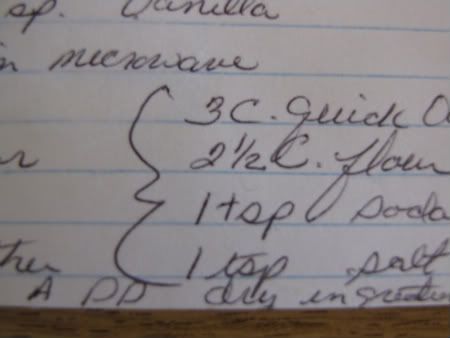 sp. Vanilla
in microwave
3 C. Quick O
2 1/2 C. flour
1 tsp soda
1 tsp salt
ADD dry ingredien